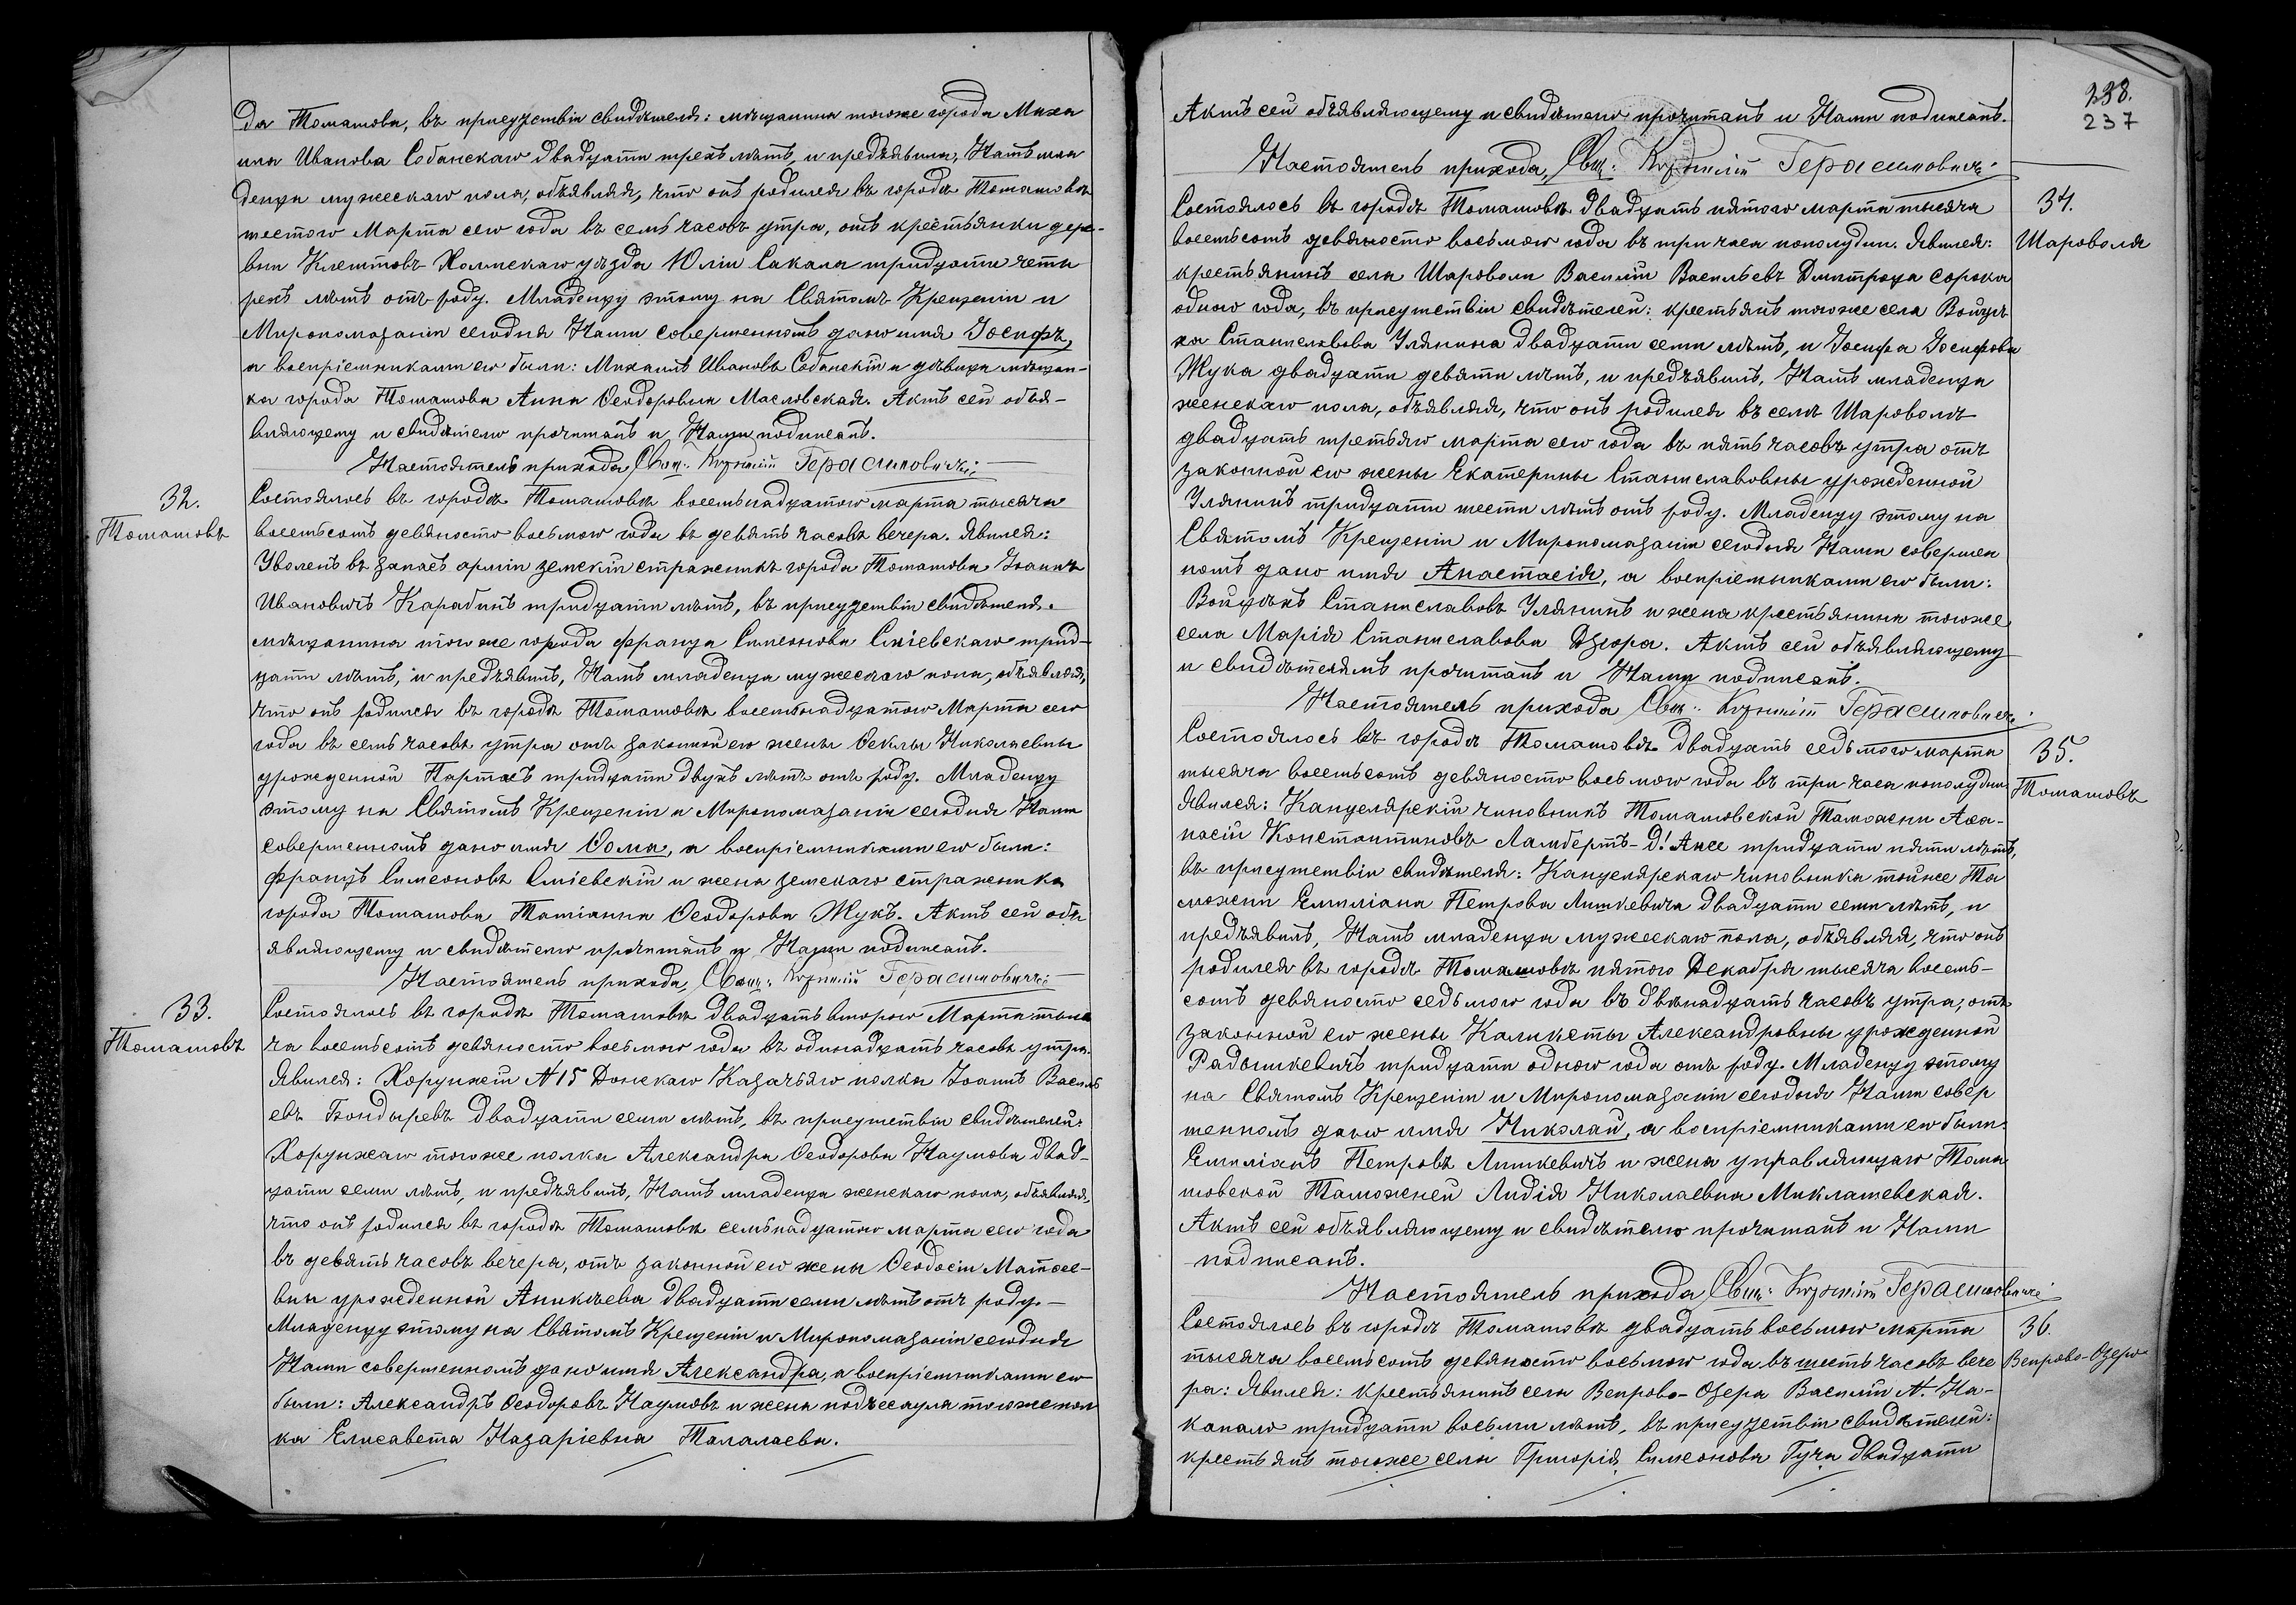 да Томашова, въ присутствіи свидѣтеля: мѣщанина тогоже города Миха
ила Иванова Собанскаго двадцати трехъ лѣтъ, и предъявила, Намъ мла
денца мужескаго пола, объявляя, что онъ родился въ городѣ Томашовѣ
шестого Марта сего года въ семь часовъ утра, отъ крестьянки дерев-
вни Клештовъ Холмскаго уѣзда Юліи Сакала тридцати четы
рехъ лѣтъ отъ роду. Младенцу этому на Святомъ Крещеніи и
Миропомазаніи сегодня Нами совершенномъ дано имя Іосифъ,
а воспріемниками его были: Михаилъ Ивановъ Собанскій и дѣвица мѣщан-
ка города Томашова Анна Ѳеодоровна Масловская. Актъ сей объя-
вляющему и свидѣтелю прочитанъ и Нами подписанъ.
Настоятель прихода, Свящ: Корнилій Герасимовичъ.
32.
Томашовъ
Состоялось въ городѣ Томашовѣ восемьнадцатого марта тысяча
восемьсотъ девяносто восьмого года въ девять часовъ вечера. Явился:
Уволенъ въ запасъ арміи земскій стражникъ города Томашова Іоаннъ
Ивановичъ Карабинъ тридцати лѣтъ, въ присутствіи свидѣтеля:
мѣщанина тогоже города Франца Симеонова Сміевскаго трид-
цати лѣтъ, и предъявилъ, Намъ младенца мужескаго пола, объявляя,
что онъ родился въ городѣ Томашовѣ восемьнадцатого Марта сего
года въ семь часовъ утра отъ законной его жены Ѳеклы Николаевны
урожденной Партасъ тридцати двухъ лѣтъ отъ роду. Младенцу
этому на Святомъ Крещеніи и Миропомазаніи сегодня Нами
совершенномъ дано имя Ѳома, а воспріемниками его были:
Францъ Симеоновъ Сміевскій и жена земскаго стражника
города Томашова Татіанна Ѳеодорова Жукъ. Актъ сей объ
являющему и свидѣтелю прочитанъ и Нами подписанъ.
Настоятель прихода, Свящ: Корнилій Герасимовичъ.
33.
Томашовъ
Состоялось въ городѣ Томашовѣ двадцать второго Марта тыся
ча восемьсотъ девяносто восьмого года въ одинадцать часовъ утра.
Явился: Хорунжей N 15 Донскаго Казачьяго полка Іоаннъ Василь
евъ Бондыревъ двадцати семи лѣтъ, въ присутствіи свидѣтелей:
Хорунжаго тогоже полка Александра Ѳеодорова Наумова двад-
цати семи лѣтъ, и предъявилъ, Намъ младенца женскаго пола, объявляя,
что онъ родился въ городѣ Томашовѣ семьнадцатого марта сего года
въ девять часовъ вечера, отъ законной его жены Ѳеодосіи Матвее-
вны урожденной Аникѣева двадцати семи лѣтъ отъ роду.
Младенцу этому на Святомъ Крещеніи и Миропомазаніи сегодня
Нами совершенномъ дано имя Александра, а воспріемниками его
были: Александръ Ѳеодоровъ Наумовъ и жена подъесаула тогоже пол
ка Елисавета Назаріевна Талалаева.
238.
237
Актъ сей объявляющему и свидѣтелю прочитанъ и Нами подписанъ.
Настоятель прихода, Свящ: Корнилій Герасимовичъ.
34.
Шароволя
Состоялось въ городѣ Томашовѣ двадцать пятого марта тысяча
восемьсотъ девяносто восьмого года въ три часа пополудни. Явился:
крестьянинъ села Шароволи Василій Васильевъ Дмитроца сорока
одного года, въ присутствіи свидѣтелей: крестьянъ тогоже села Войцѣ
ха Станиславова Улянина двадцати семи лѣтъ, и Іосифа Іосифова
Жука двадцати девяти лѣтъ, и предъявилъ, Намъ младенца
женскаго пола, объявляя, что онъ родился въ селѣ Шароволѣ
двадцать третьяго марта сего года въ пять часовъ утра отъ
законной его жены Екатерины Станиславовны урожденной
Улянинъ тридцати шести лѣтъ отъ роду. Младенцу этому на
Святомъ Крещеніи и Миропомазаніи сегодня Нами совершен
номъ дано имя Анастасія, а воспріемниками его были:
Войцѣхъ Станиславовъ Улянинъ и жена крестьянина тогоже
села Марія Станиславова Дзюра. Актъ сей объявляющему
и свидѣтелямъ прочитанъ и Нами подписанъ.
Настоятель прихода Свящ: Корнилій Герасимовичъ.
35.
Томашовъ
Состоялось въ городѣ Томашовѣ двадцать седьмого марта
тысяча восемьсотъ девяносто восьмого года въ три часа пополудни
Явился: Канцелярскій чиновникъ Томашовской Таможни Аѳа-
насій Константиновъ Ламбертъ-Д! Ансе тридцати пяти лѣтъ,
въ присутствіи свидѣтеля: Канцелярскаго чиновника тойже Та
можни Емиліана Петрова Лишкевича двадцати семи лѣтъ, и
предъявилъ, Намъ младенца мужескаго пола, объявляя, что онъ
родился въ городѣ Томашовѣ пятого Декабря тысяча восемь-
сотъ девяносто седьмого года въ двѣнадцать часовъ утра, отъ
законной его жены Каликсты Александровны урожденной
Радышкевичъ тридцати одного года отъ роду. Младенцу этому
на Святомъ Крещеніи и Миропомазаніи сегодня Нами совер
шенномъ дано имя Николай, а воспріемниками его были:
Емиліанъ Петровъ Лишкевичъ и жена управляющаго Тома
шовской Таможней Лидія Николаевна Миклашевская.
Актъ сей объявляющему и свидѣтелю прочитанъ и Нами
подписанъ.
Настоятель прихода Свящ: Корнилій Герасимовичъ
36.
Вепрово-Озеро
Состоялось въ городѣ Томашовѣ двадцать восьмого марта
тысяча восемьсотъ девяносто восьмого года въ шесть часовъ вече
ра: Явился: крестьянинъ села Вепрово-Озера Василій N. На-
конало тридцати восьми лѣтъ, въ присутствіи свидѣтелей:
крестьянъ тогоже села Григорія Симеонова Гуча двадцати